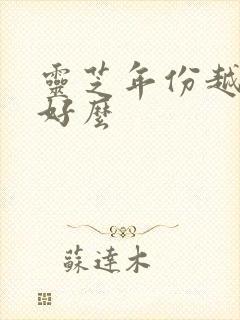 靈芝年份越
好麼
蘇達木